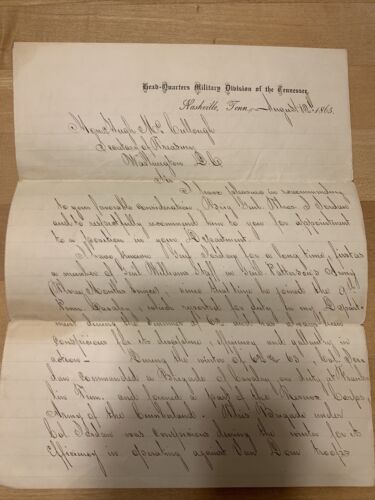 Head-Quarters Military Division of the Tennessee,
Nashville, Tenn., August 12th 1865.
Hon. Hugh McCullough
Secretary of Treasury
Washington D.C.
Sir
I have pleasure in recommending
to your favorable consideration Brig Genl Thos. J Jordan
and to respectfully recommend him to you for appointment
to a position in your Department.
I have known Genl Jordan for a long time, first as
a member of Genl Williams Staff in Genl Patterson's Army
Three Months Service, since that time he joined the 9th
Penn Cavalry, which reported for duty in my Depart-
ment during the Summer of 62 and has always been
conspicuous for its discipline, efficiency and gallantry in
action. During the winter of 62 & 63 Col Jor-
dan commanded a Brigade of Cavalry, on duty at Frank-
lin Tenn. and formed a part of the Reserve Corps,
Army of the Cumberland. This Brigade under
Col Jordan was conspicuous during the winter for its
efficiency in operating against Van Dorn troops